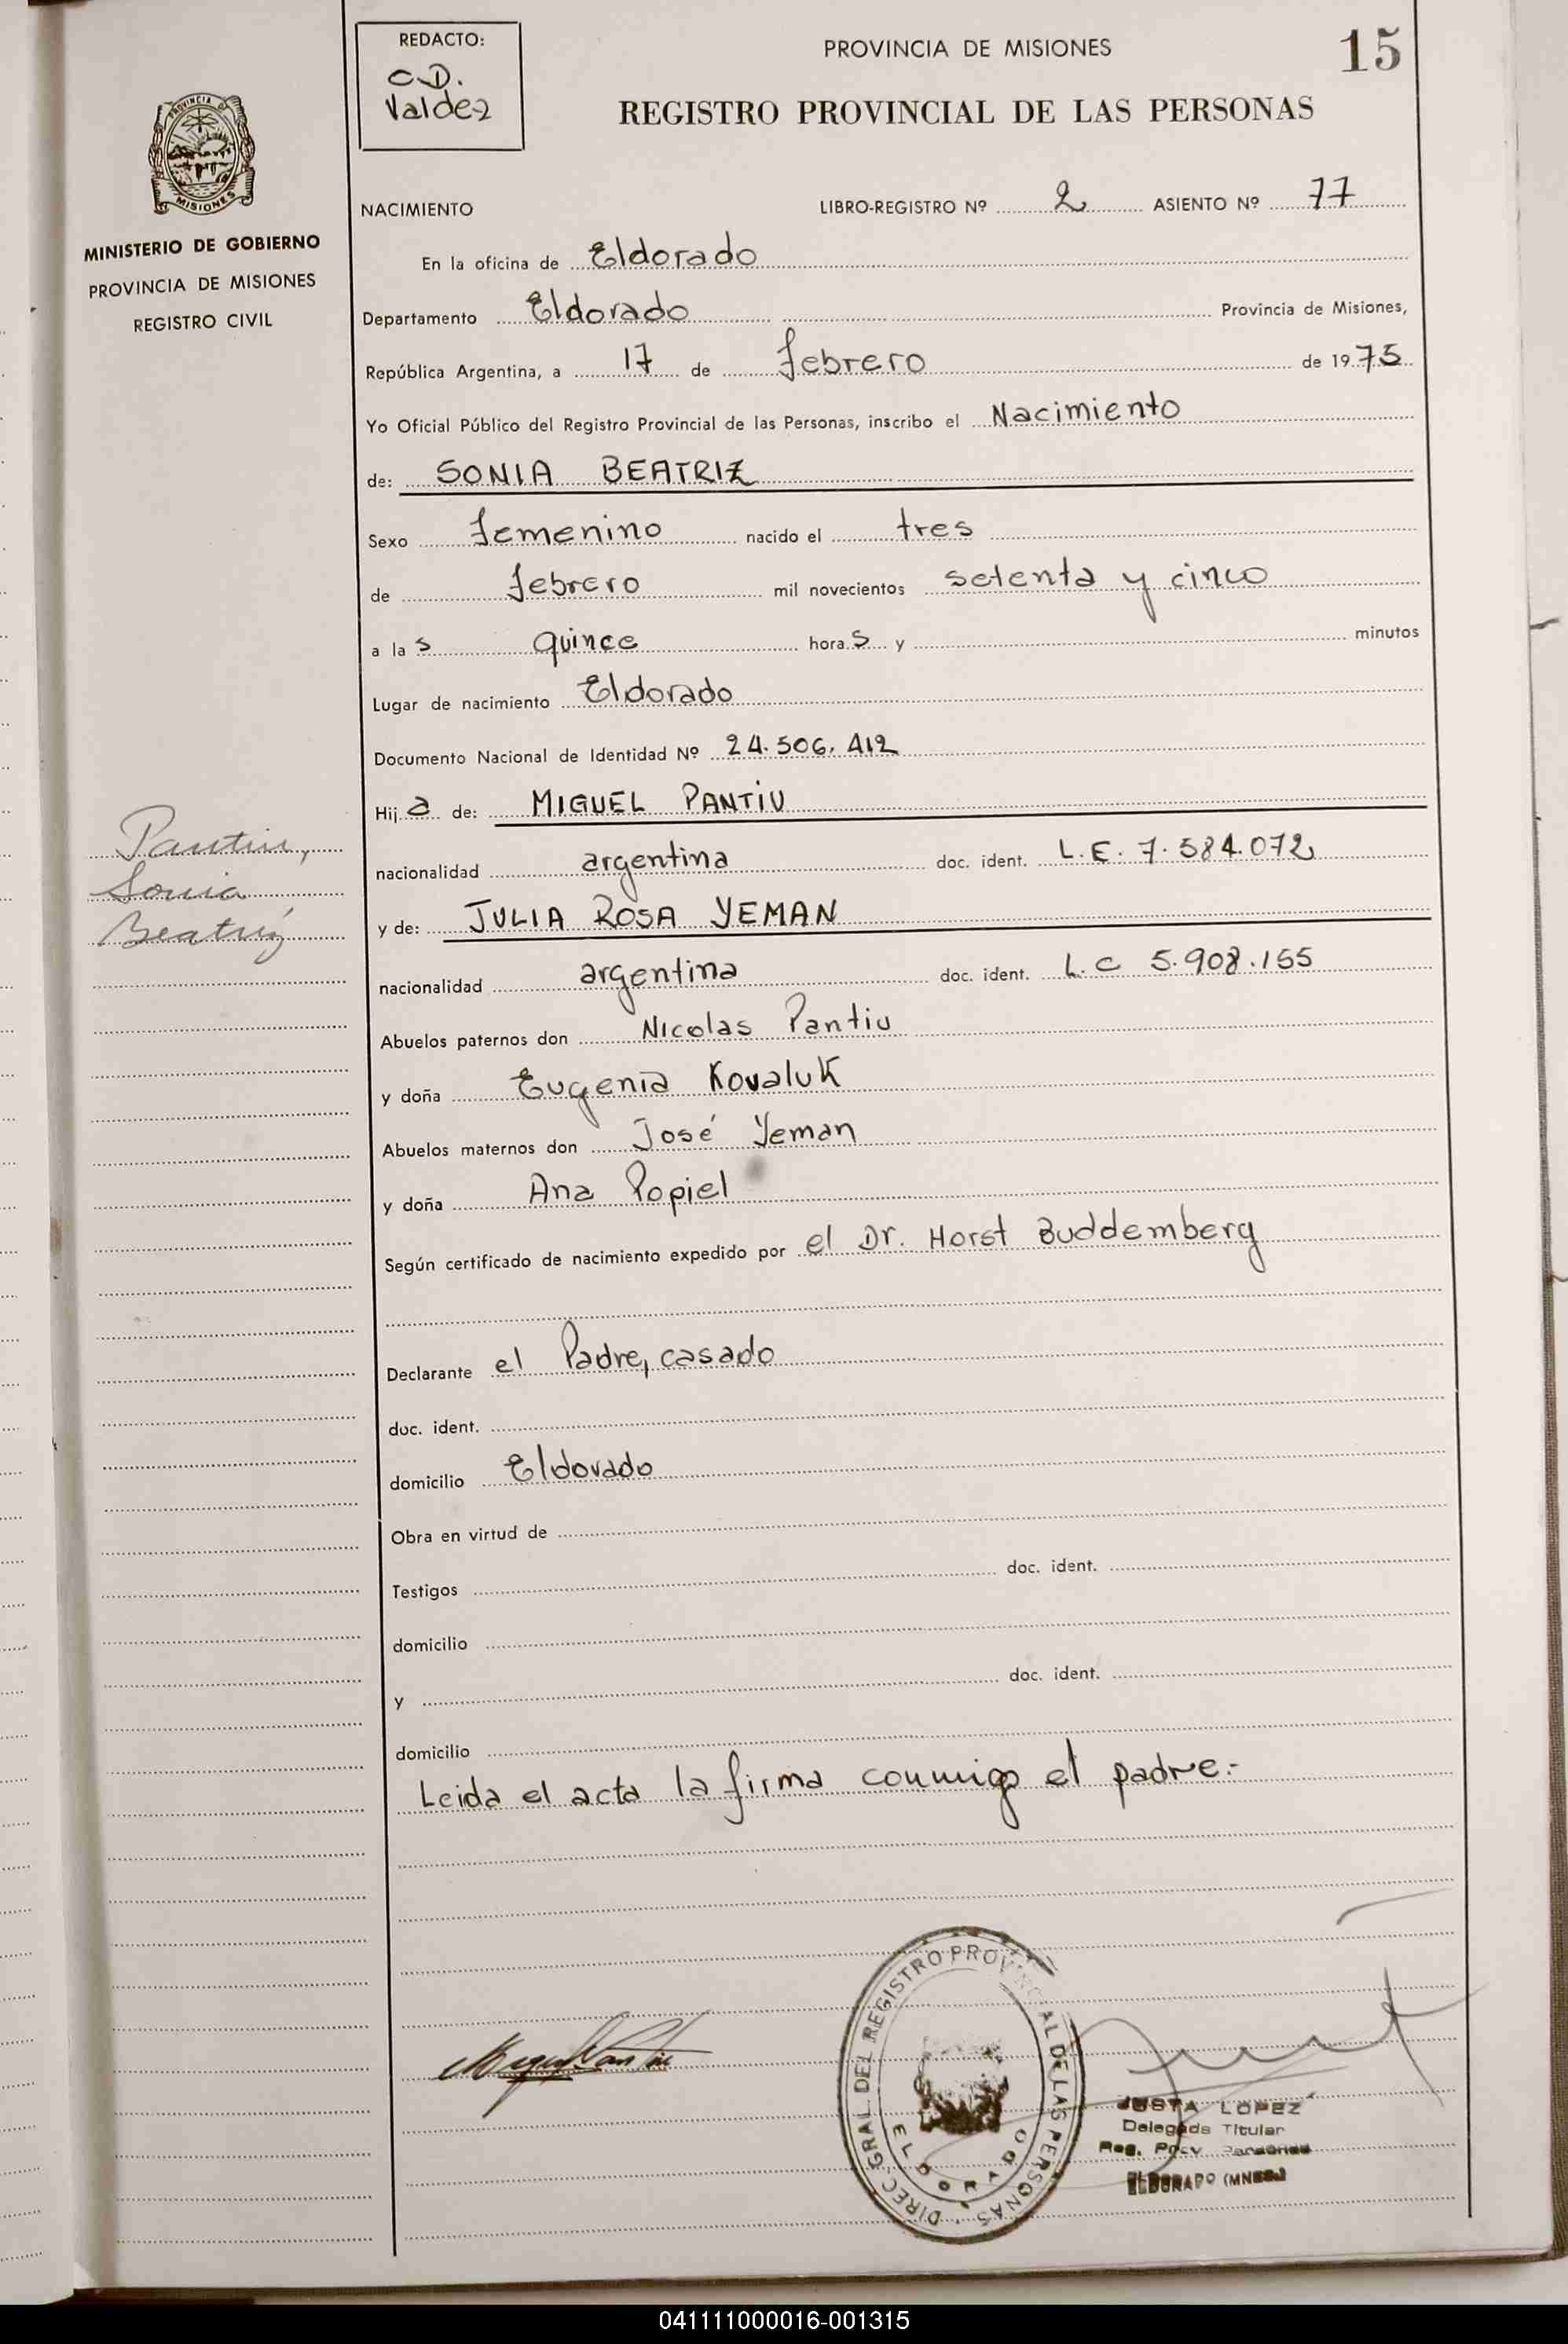 REDACTO:
C.D.
Valdez
PROVINCIA DE MISIONES
15
REGISTRO PROVINCIAL DE LAS PERSONAS
PROVINCIA DE
MISIONES
MINISTERIO DE GOBIERNO
PROVINCIA DE MISIONES
REGISTRO CIVIL
NACIMIENTO LIBRO-REGISTRO Nº 2 ASIENTO Nº 77
En la oficina de Eldorado
Departamento Eldorado Provincia de Misiones,
República Argentina, a 17 de febrero de 1975
Yo Oficial Público del Registro Provincial de las Personas, inscribo el Nacimiento
de: SONIA BEATRIZ
Sexo femenino nacido el tres
de febrero mil novecientos setenta y cinco
a las quince horas y minutos
Lugar de nacimiento Eldorado
Documento Nacional de Identidad Nº 24.506.412
Hija de: MIGUEL PANTIU
Pantiu,
Sonia
Beatríz
nacionalidad argentina doc. ident. L.E. 7.584.072
y de: JULIA ROSA YEMAN
nacionalidad argentina doc. ident. L.C 5.908.155
Abuelos paternos don Nicolas Pantiu
y doña Eugenia Kovaluk
Abuelos maternos don José Yeman
y doña Ana Popiel
Según certificado de nacimiento expedido por el Dr. Horst Buddemberg
Declarante el Padre, casado
doc. ident.
domicilio Eldorado
Obra en virtud de
Testigos doc. ident.
domicilio
y doc. ident.
domicilio
Leida el acta la firma conmigo el padre.-
Miguel Pantiu
DIREC. GRAL. DEL REGISTRO PROVINCIAL DE LAS PERSONAS
ELDORADO
JUSTA LOPEZ
Delegada Titular
Reg. Prov. Personas
ELDORADO (MNES.)
041111000016-001315